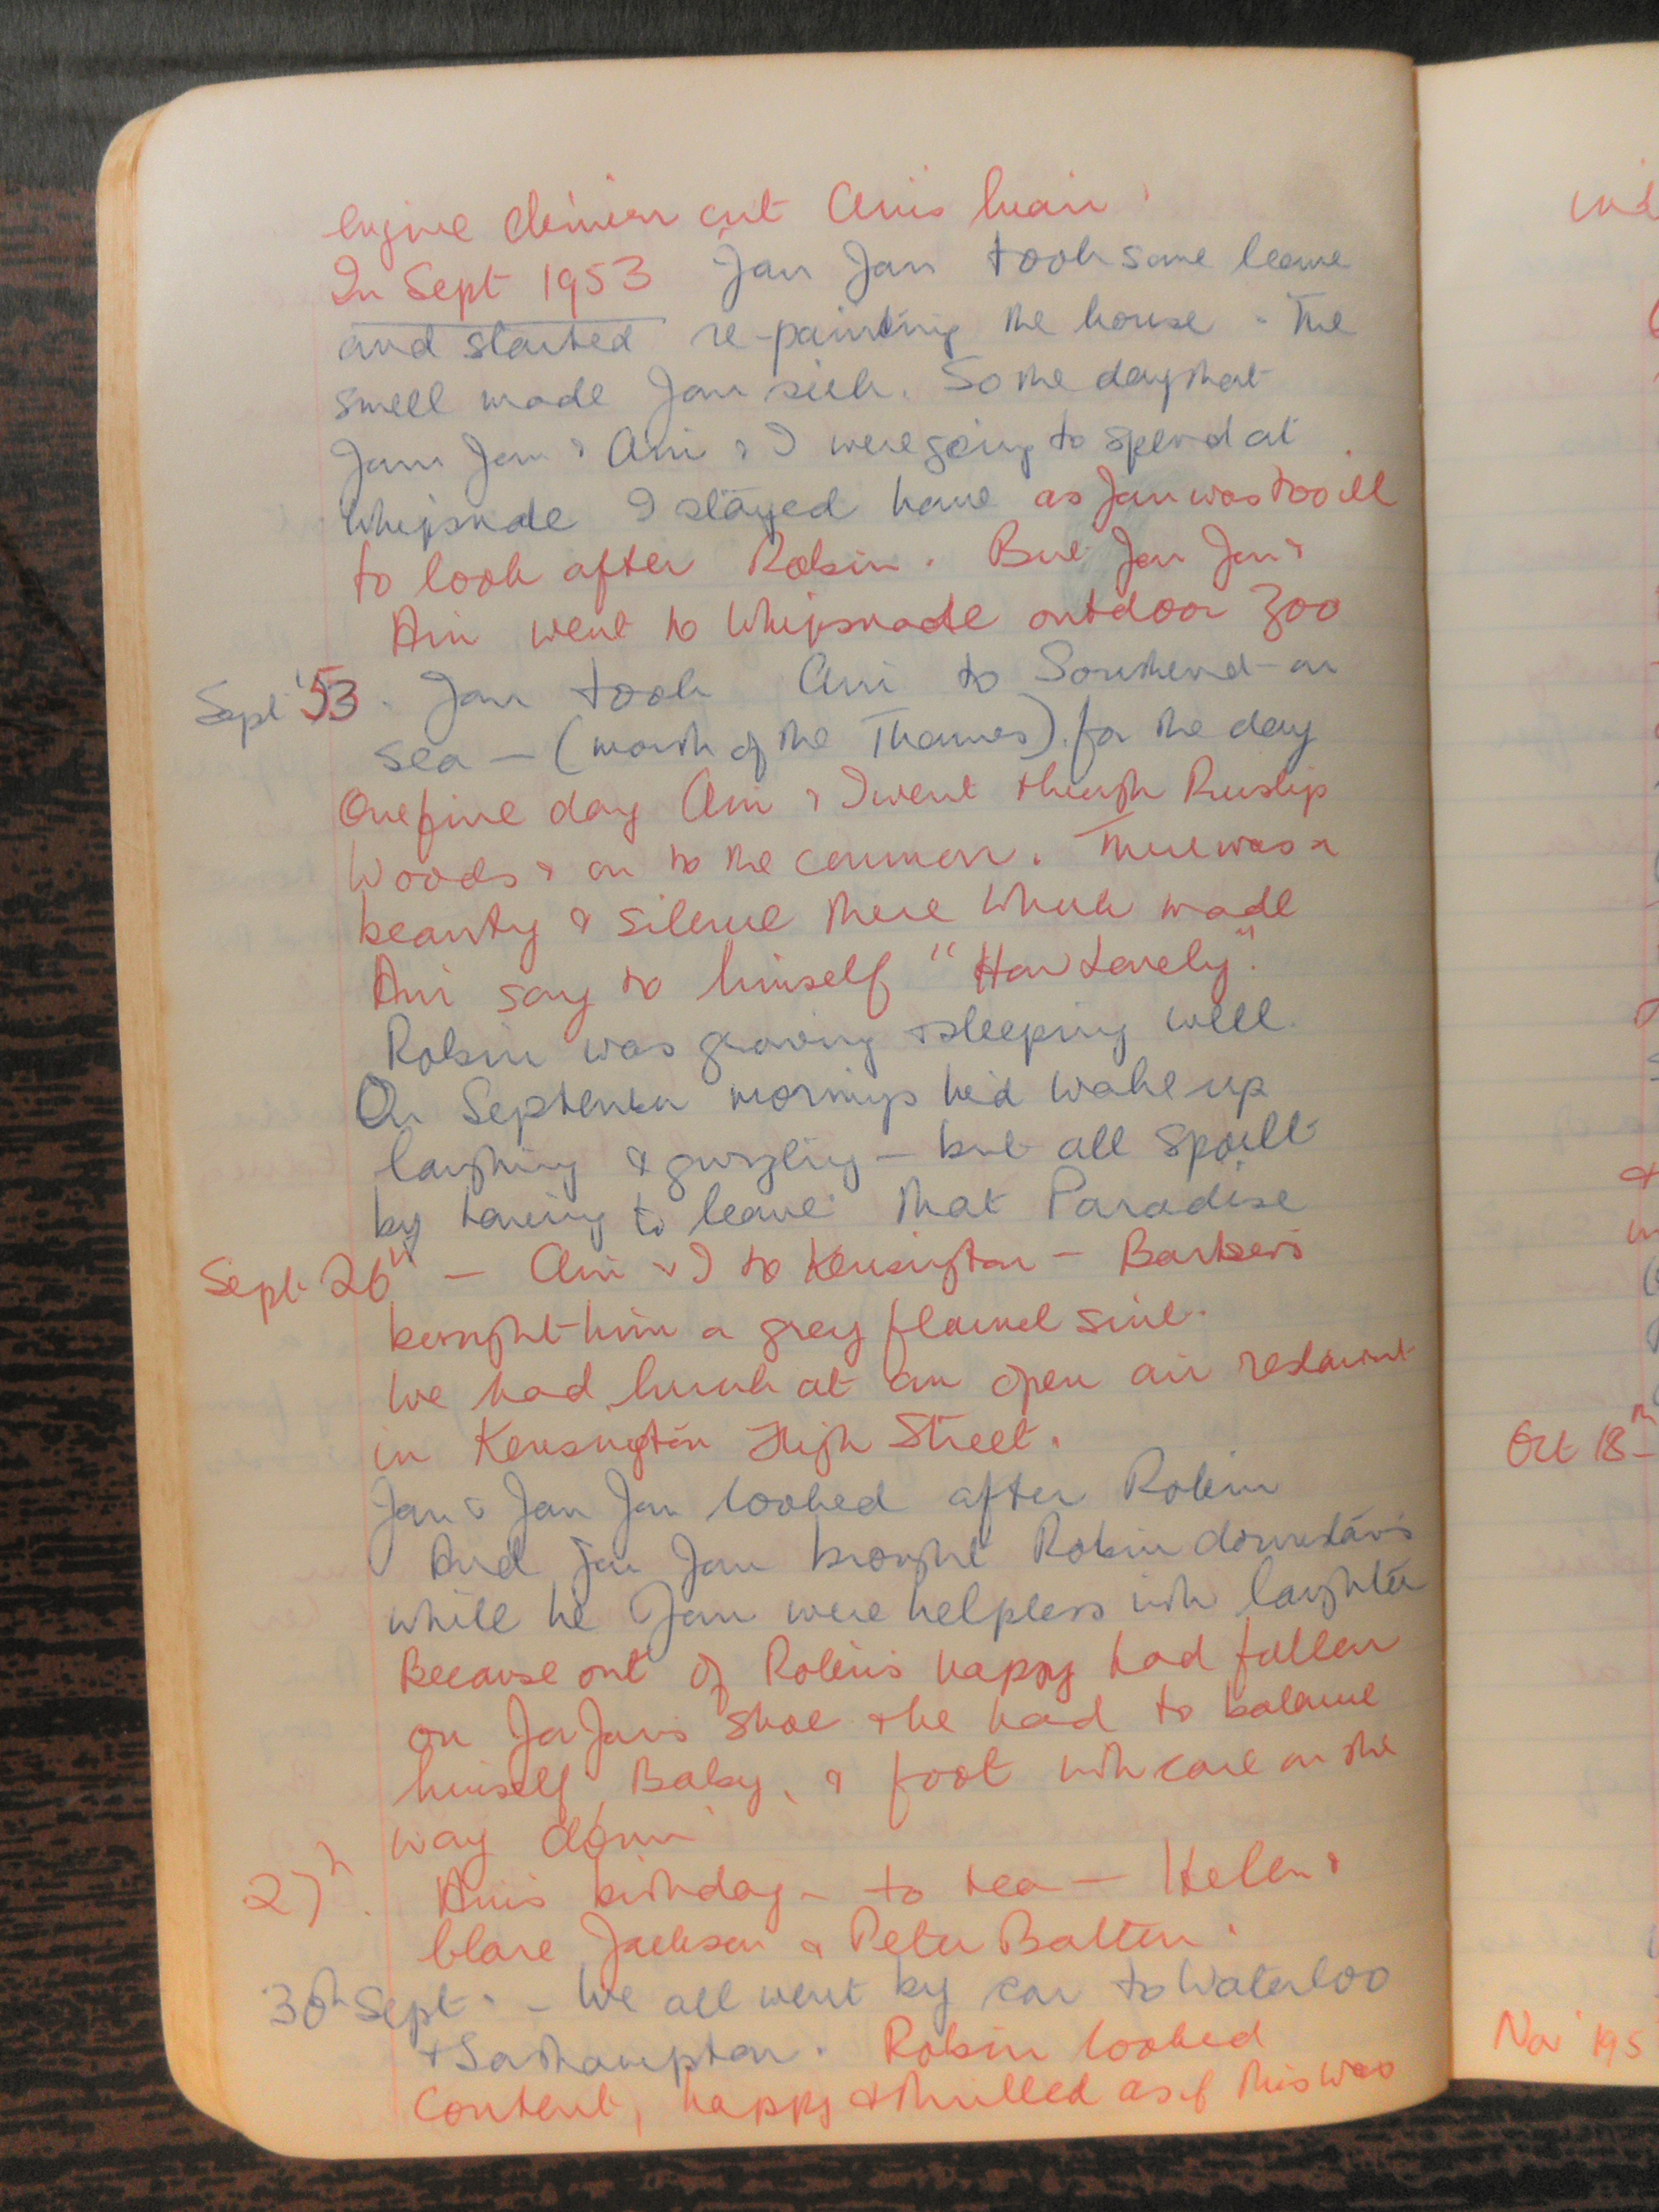 engine driver cut Ani's hair.
In Sept 1953 Jan Jan took some leave
and started re-painting the house. The
smell made Jan sick. So the day that
Jan Jan & Ani & I were going to spend at
Whipsnade I stayed home as Jan was too ill
to look after Robin. But Jan Jan &
Ani went to Whipsnade outdoor Zoo
Sept '53. Jan took Ani to Southend-on
sea — (mouth of the Thames) for the day
One fine day Ani & I went through Ruislip
Woods & on to the common. There was a
beauty & silence there which made
Ani say to himself "How Lovely".
Robin was growing & sleeping well.
On September mornings he'd wake up
laughing & gurgling — but all spoilt
by having to leave that Paradise
Sept 26th — Ani & I to Kensington — Barkers
bought him a grey flannel suit.
We had lunch at an open air restaurant
in Kensington High Street.
Jan & Jan Jan looked after Robin
And Jan Jan brought Robin downstairs
while he Jan were helpless with laughter
Because out of Robin's nappy had fallen
on Jan Jan's shoe & he had to balance
himself, Baby, & foot with care on the
way down
27th. Ani's birthday — to tea — Helen &
Clare Jackson & Peter Batten.
30th Sept. — We all went by car to Waterloo
& Southampton. Robin looked
content, happy & thrilled as if this was
Oct 18th —
Nov 195